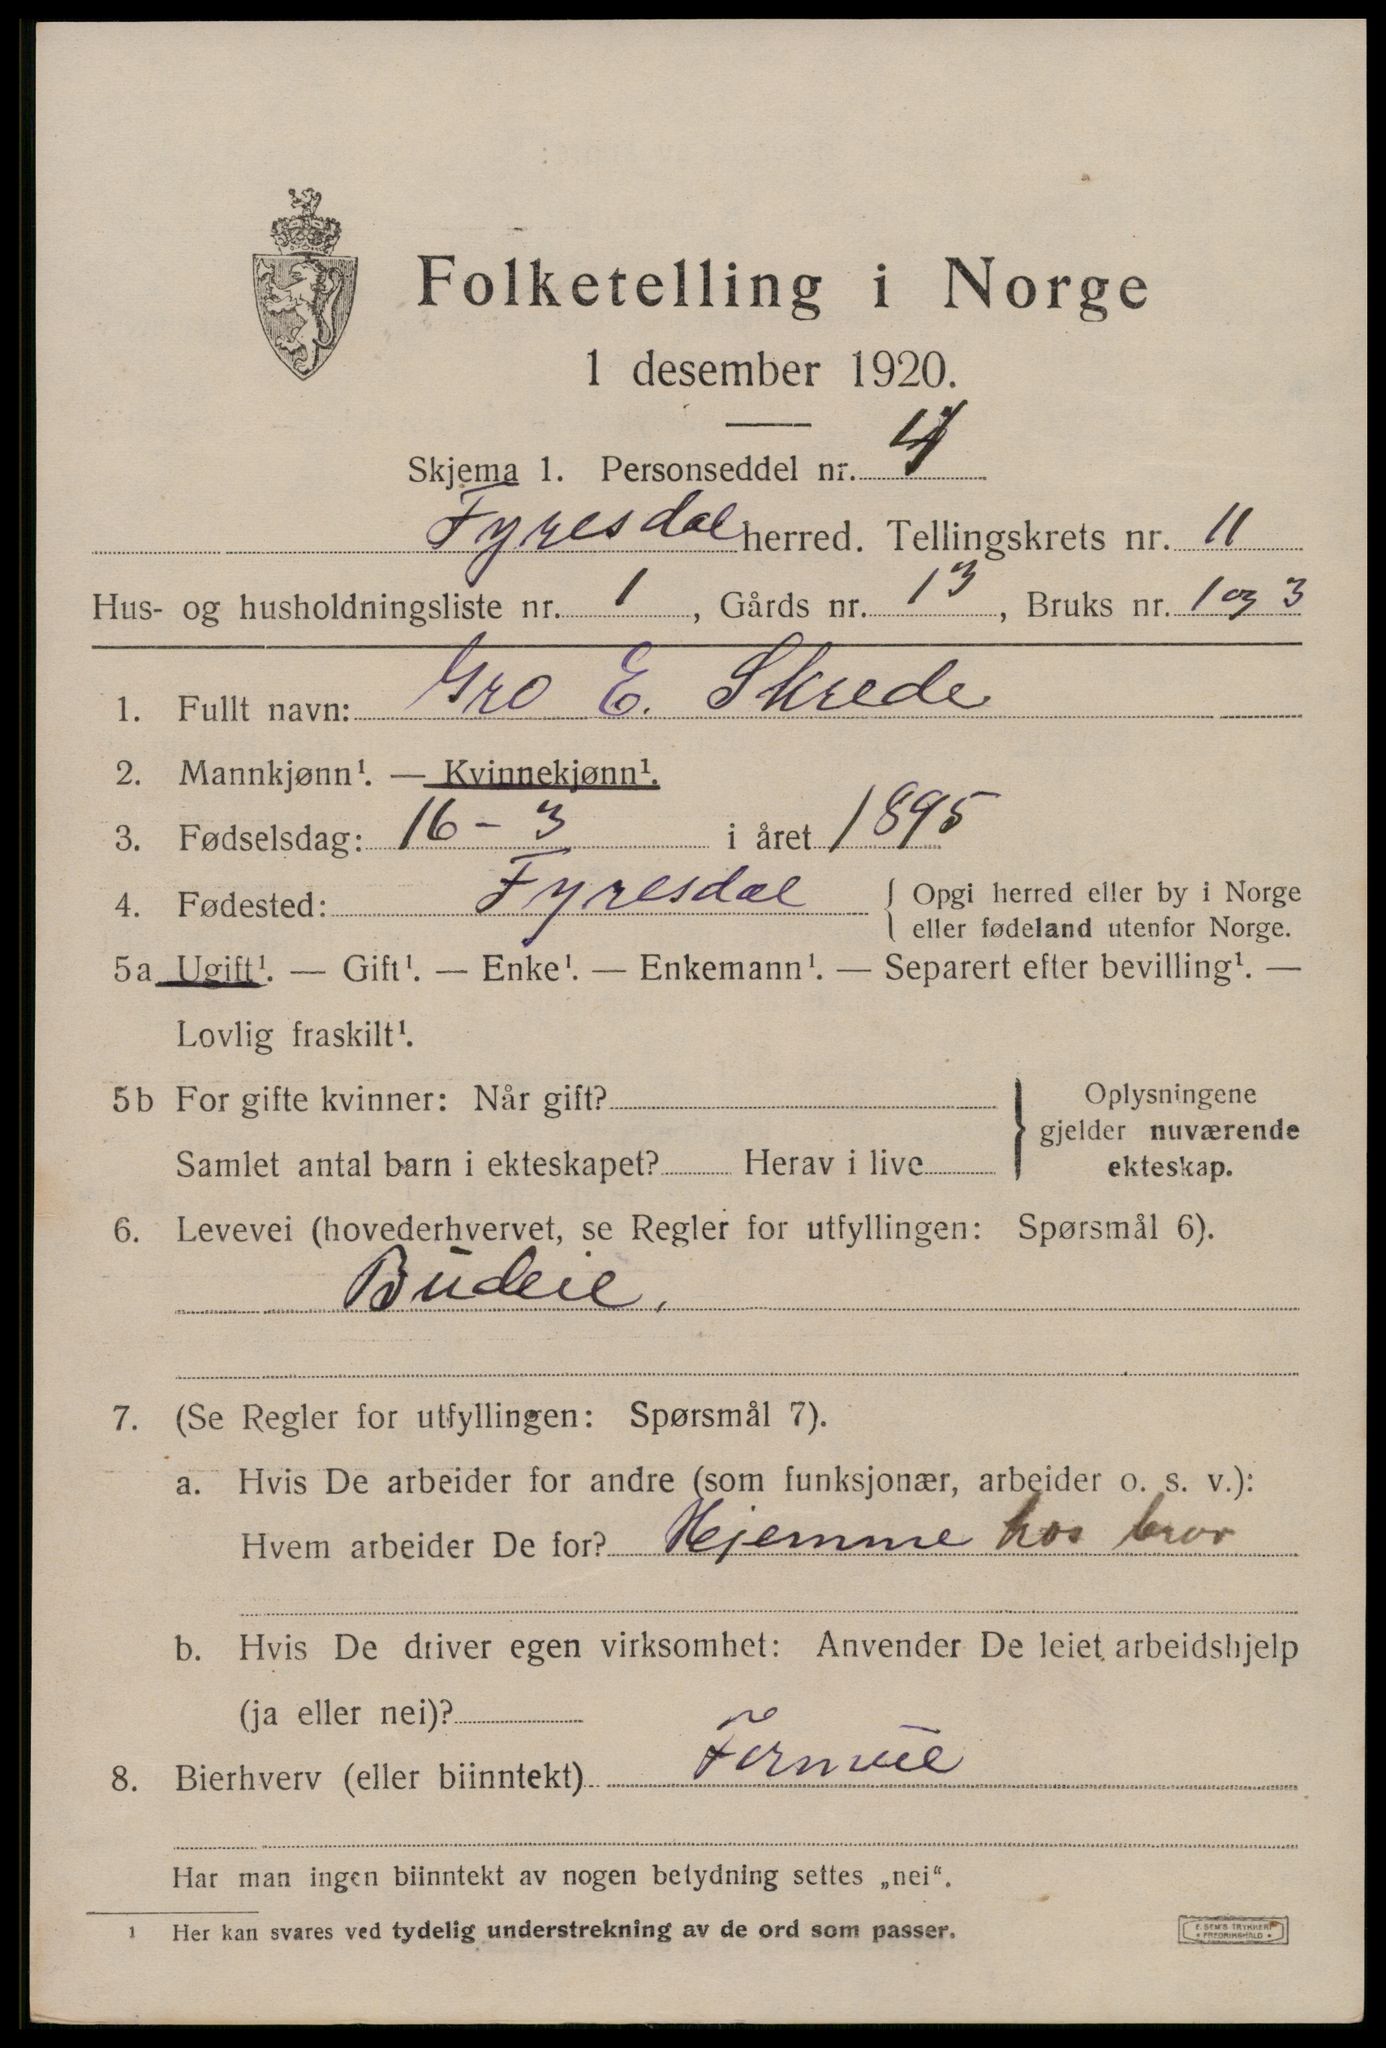 Folketelling i Norge
1 desember 1920.
Skjema 1. Personseddel nr. 4
Fyresdal herred. Tellingskrets nr. 11
Hus- og husholdningsliste nr. 1, Gårds nr. 13, Bruks nr. 1 og 3
1. Fullt navn: Gro E. Skrede
2. Mannkjønn¹. — Kvinnekjønn¹.
3. Fødselsdag: 16 - 3 i året 1895
4. Fødested: Fyresdal { Opgi herred eller by i Norge
eller fødeland utenfor Norge.
5a Ugift¹. — Gift¹. — Enke¹. — Enkemann¹. — Separert efter bevilling¹. —
Lovlig fraskilt¹.
5b For gifte kvinner: Når gift? } Oplysningene
gjelder nuværende
Samlet antal barn i ekteskapet? Herav i live
ekteskap.
6. Levevei (hovederhvervet, se Regler for utfyllingen: Spørsmål 6).
Budeie.
7. (Se Regler for utfyllingen: Spørsmål 7).
a. Hvis De arbeider for andre (som funksjonær, arbeider o. s. v.):
Hvem arbeider De for? Hjemme hos bror
b. Hvis De driver egen virksomhet: Anvender De leiet arbeidshjelp
(ja eller nei)?
8. Bierhverv (eller biinntekt)
Har man ingen biinntekt av nogen betydning settes „nei“.
1 Her kan svares ved tydelig understrekning av de ord som passer.
E. SEM'S TRYKKERI
* FREDRIKSHALD *